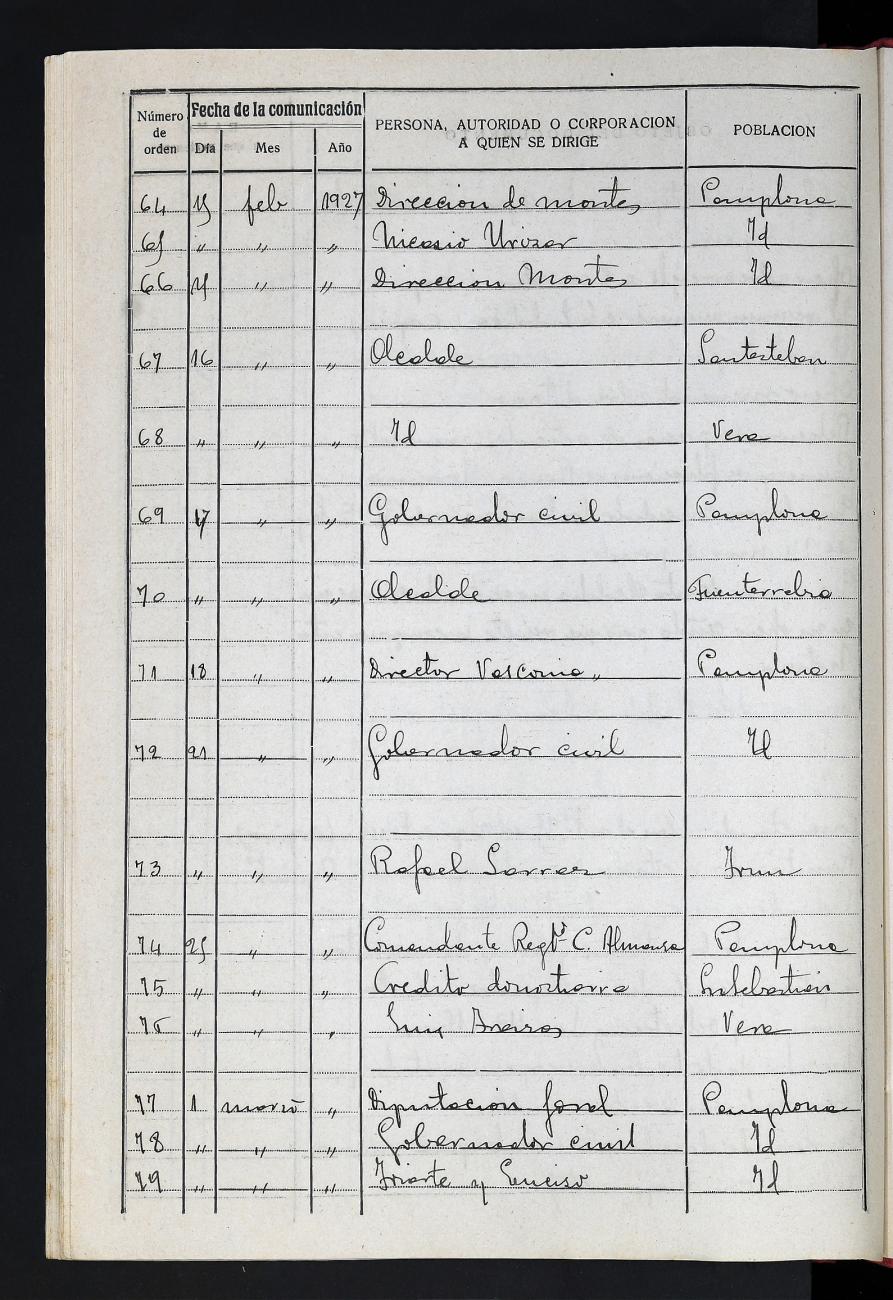 Número de orden | Fecha de la comunicación | PERSONA, AUTORIDAD O CORPORACION A QUIEN SE DIRIGE | POBLACION
Día | Mes | Año
64 15 feb 1927 Direccion de montes Pamplona
65 " " " Nicasio Urizar Id
66 15 " " Direccion Montes Id
67 16 " " Alcalde Santesteban
68 " " " Id Vera
69 17 " " Gobernador civil Pamplona
70 " " " Alcalde Fuenterrabia
71 18 " " Director Vasconia " Pamplona
72 21 " " Gobernador civil Id
73 " " " Rafael Irun
74 25 " " Comandante Regtº C. Almansa Pamplona
75 " " " Credito donostiarra
76 " " " Luis Vera
77 1 marzo " Diputacion foral Pamplona
78 " " " Gobernador civil Id
79 " " " Iriarte y Enciso Id